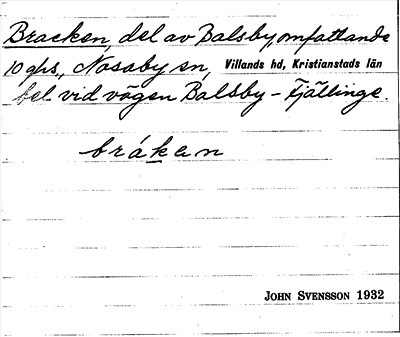 Bracken, del av Balsby, omfattande
10 gås., Nosaby sn, Villands hd, Kristianstads län
bel. vid vägen Balsby - Fjällinge.
bráken
JOHN SVENSSON 1932